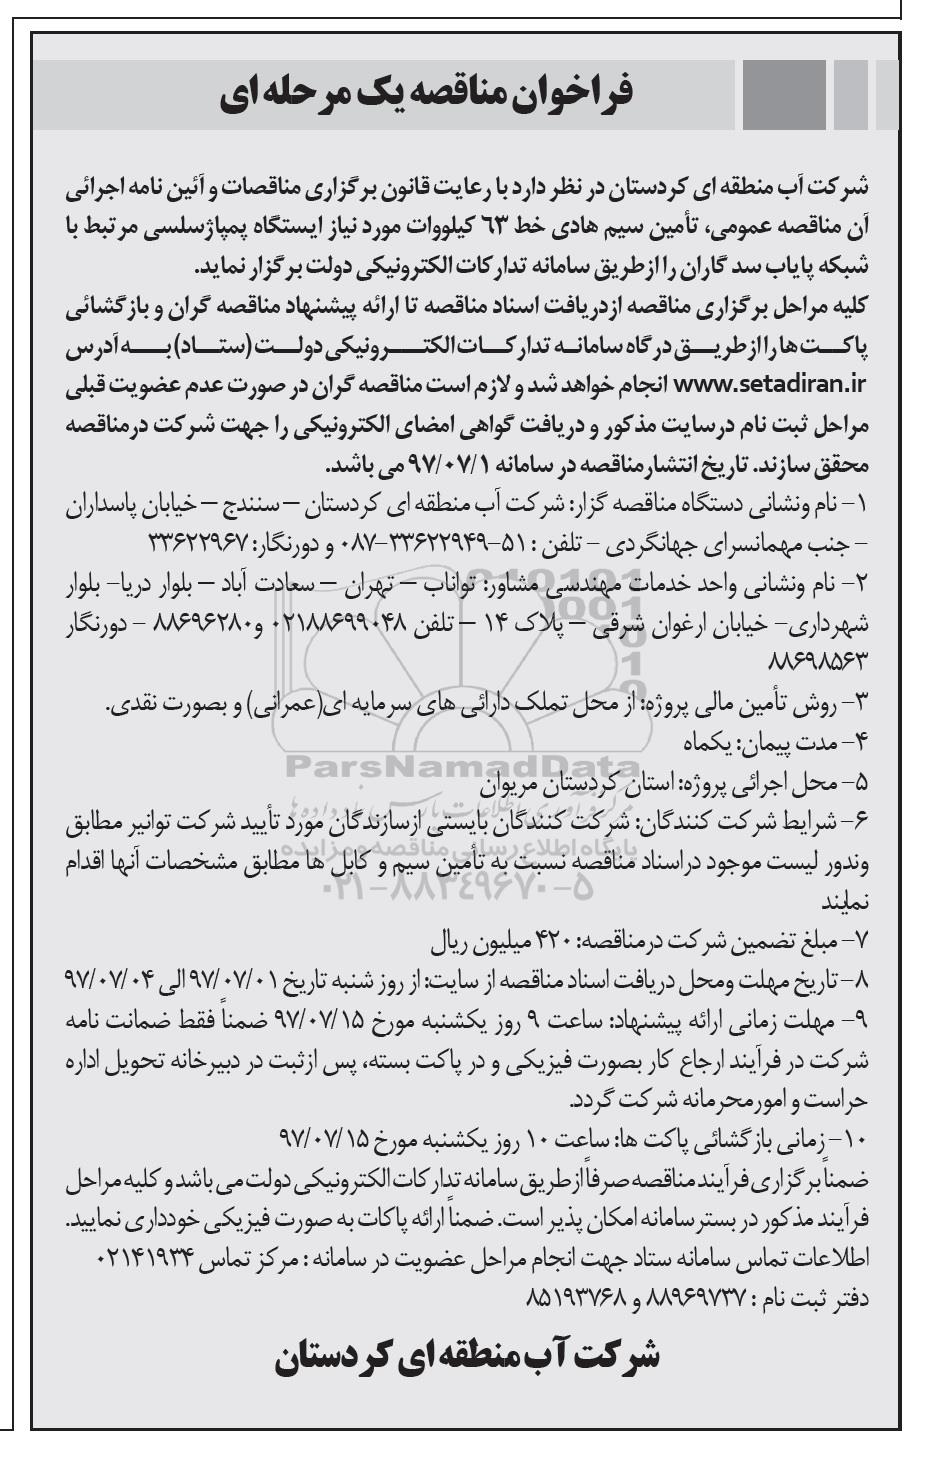 فراخوان مناقصه یک مرحله ای
شرکت آب منطقه ای کردستان در نظر دارد با رعایت قانون برگزاری مناقصات و آئین نامه اجرائی
آن مناقصه عمومی، تأمین سیم هادی خط ۶۳ کیلووات مورد نیاز ایستگاه پمپاژسلسی مرتبط با
شبکه پایاب سد گاران را ازطریق سامانه تدارکات الکترونیکی دولت برگزار نماید.
کلیه مراحل برگزاری مناقصه ازدریافت اسناد مناقصه تا ارائه پیشنهاد مناقصه گران و بازگشائی
پاکت ها را ازطریق درگاه سامانه تدارکات الکترونیکی دولت (ستاد) به آدرس
www.setadiran.ir انجام خواهد شد و لازم است مناقصه گران در صورت عدم عضویت قبلی
مراحل ثبت نام درسایت مذکور و دریافت گواهی امضای الکترونیکی را جهت شرکت درمناقصه
محقق سازند. تاریخ انتشارمناقصه در سامانه ۹۷/۰۷/۱ می باشد.
۱- نام ونشانی دستگاه مناقصه گزار: شرکت آب منطقه ای کردستان – سنندج – خیابان پاسداران
- جنب مهمانسرای جهانگردی - تلفن : ۵۱-۳۳۶۲۲۹۴۹-۰۸۷ و دورنگار: ۳۳۶۲۲۹۶۷
۲- نام ونشانی واحد خدمات مهندسی مشاور: تواناب – تهران – سعادت آباد – بلوار دریا- بلوار
شهرداری- خیابان ارغوان شرقی – پلاک ۱۴ – تلفن ۰۲۱۸۸۶۹۹۰۴۸ و۸۸۶۹۶۲۸۰ - دورنگار
۸۸۶۹۸۵۶۳
۳- روش تأمین مالی پروژه: از محل تملک دارائی های سرمایه ای(عمرانی) و بصورت نقدی.
۴- مدت پیمان: یکماه
ParsNamadData
۵- محل اجرائی پروژه: استان کردستان مریوان
۶- شرایط شرکت کنندگان: شرکت کنندگان بایستی ازسازندگان مورد تأیید شرکت توانیر مطابق
پایگاه اطلاع رسانی مناقصه و مزایده
وندور لیست موجود دراسناد مناقصه نسبت به تأمین سیم و کابل ها مطابق مشخصات آنها اقدام
۰۲۱-۸۸۳۴۹۶۷۰-۵
نمایند
۷- مبلغ تضمین شرکت درمناقصه: ۴۲۰ میلیون ریال
۸- تاریخ مهلت ومحل دریافت اسناد مناقصه از سایت: از روز شنبه تاریخ ۹۷/۰۷/۰۱ الی ۹۷/۰۷/۰۴
۹- مهلت زمانی ارائه پیشنهاد: ساعت ۹ روز یکشنبه مورخ ۹۷/۰۷/۱۵ ضمناً فقط ضمانت نامه
شرکت در فرآیند ارجاع کار بصورت فیزیکی و در پاکت بسته، پس ازثبت در دبیرخانه تحویل اداره
حراست و امورمحرمانه شرکت گردد.
۱۰- زمانی بازگشائی پاکت ها: ساعت ۱۰ روز یکشنبه مورخ ۹۷/۰۷/۱۵
ضمناً برگزاری فرآیند مناقصه صرفاً ازطریق سامانه تدارکات الکترونیکی دولت می باشد و کلیه مراحل
فرآیند مذکور در بسترسامانه امکان پذیر است. ضمناً ارائه پاکات به صورت فیزیکی خودداری نمایید.
اطلاعات تماس سامانه ستاد جهت انجام مراحل عضویت در سامانه : مرکز تماس ۰۲۱۴۱۹۳۴
دفتر ثبت نام : ۸۸۹۶۹۷۳۷ و ۸۵۱۹۳۷۶۸
شرکت آب منطقه ای کردستان